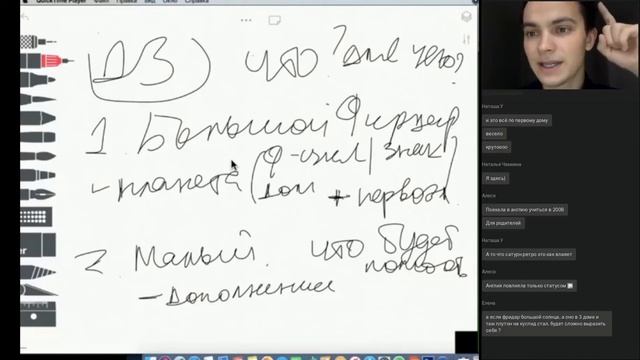 QuickTime Player Файл Правка Вид Окно Справка
ДЗ что? для чего?
1. Большой Фирдар
- планета (Ф-цикл/знак
дом +
2. Малый. что будет
- дополнение
Наташа У
и это всё по первому дому
весело
круто000
Наталья Чикина
Я здесь)
Алеся
Поехала в англию учиться в 2008
Для родителей
Наташа У
А то что сатурн ретро это как влияет
Алеся
Англия повлияла только статусом
Елена
а если фридар большой солнца, а оно в 3 доме и
там плутон на куспид стал, будет сложно выразить
себя ?